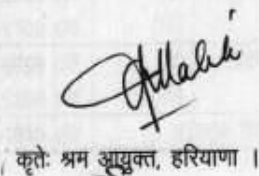 कृतेः श्रम आयुक्त, हरियाणा ।